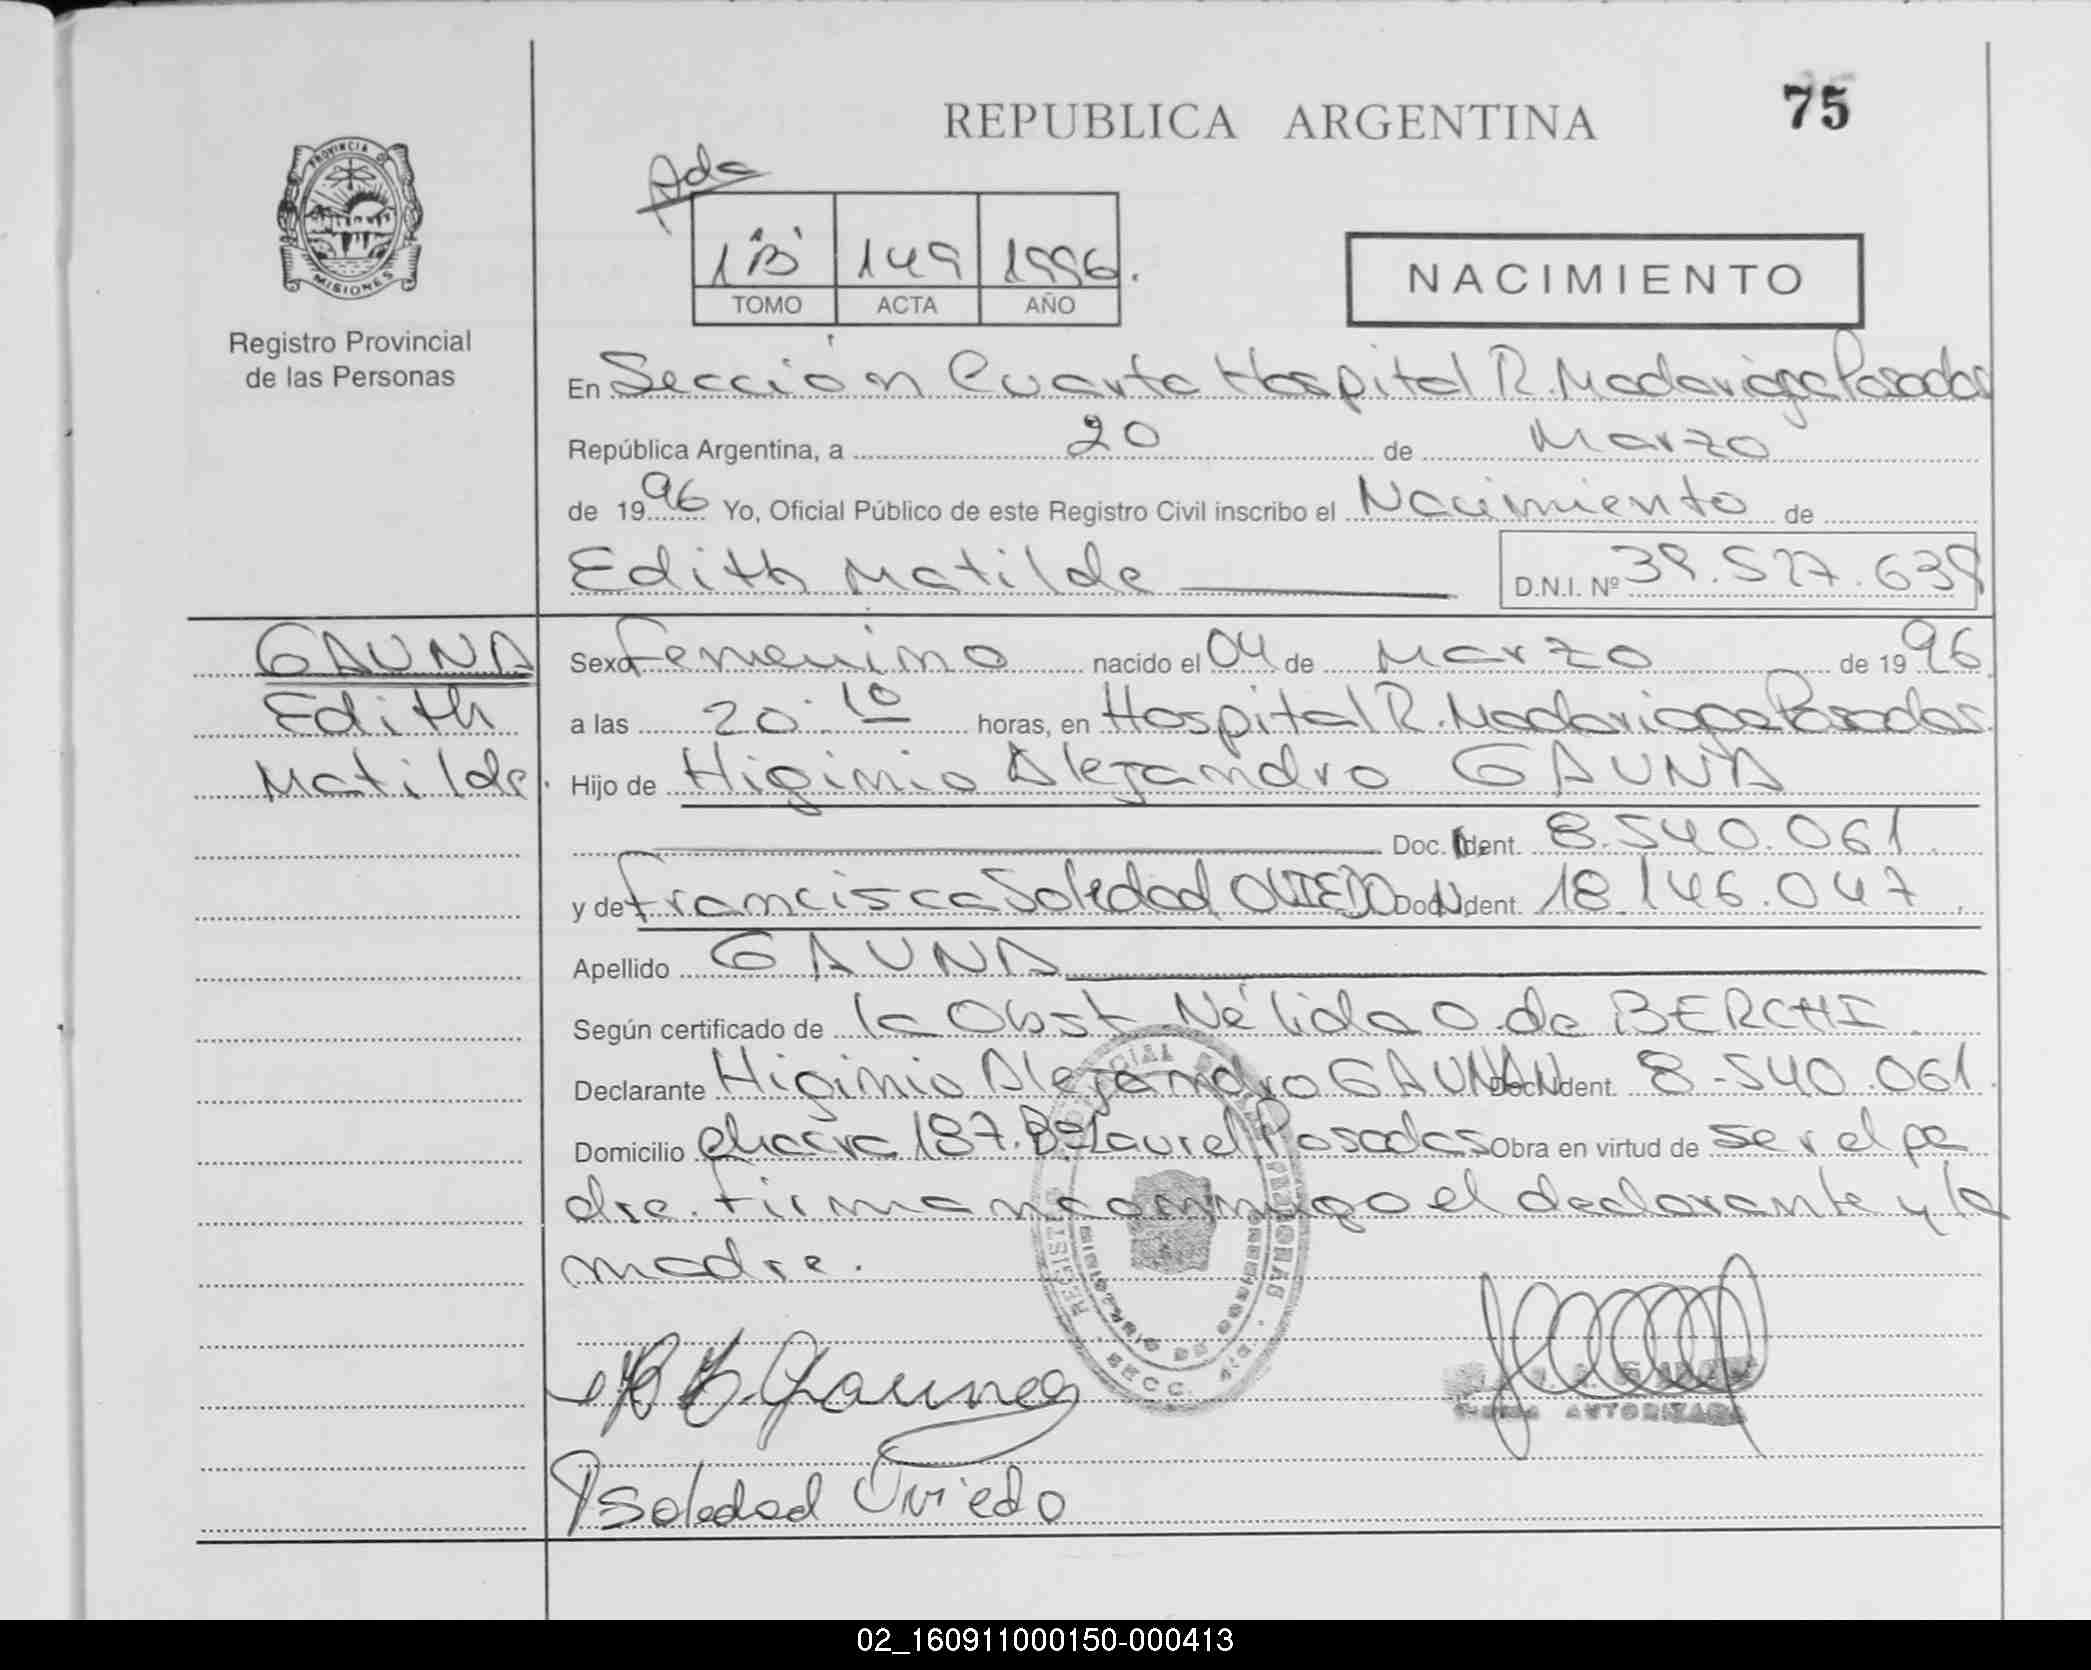 REPUBLICA ARGENTINA
75
PROVINCIA DE
MISIONES
Registro Provincial
de las Personas
Ada
1 "B" 149 1996.
TOMO ACTA AÑO
NACIMIENTO
En Sección Cuarta Hospital R. Madariaga Posadas
República Argentina, a 20 de Marzo
de 1996 Yo, Oficial Público de este Registro Civil inscribo el Nacimiento de
Edith Matilde D.N.I. Nº 39.527.639
GAUNA Sexo Femenino nacido el 04 de Marzo de 1996
Edith a las 20:10 horas, en Hospital R. Madariaga Posadas.
Matilde. Hijo de Higinio Alejandro GAUNA
Doc. Ident. 8.540.061
y de Francisca Soledad OVIEDO Doc. Ident. 18.146.047
Apellido GAUNA
Según certificado de la Obst Nélida O. de BERCHI
Declarante Higinio Alejandro GAUNA Doc. Ident. 8.540.061
Domicilio Chacra 187. Bº Laurel Posadas Obra en virtud de ser el pa
dre. Firman conmigo el declarante y la
madre.
Gauna
AUTORIZADA
Soledad Oviedo
02_160911000150-000413